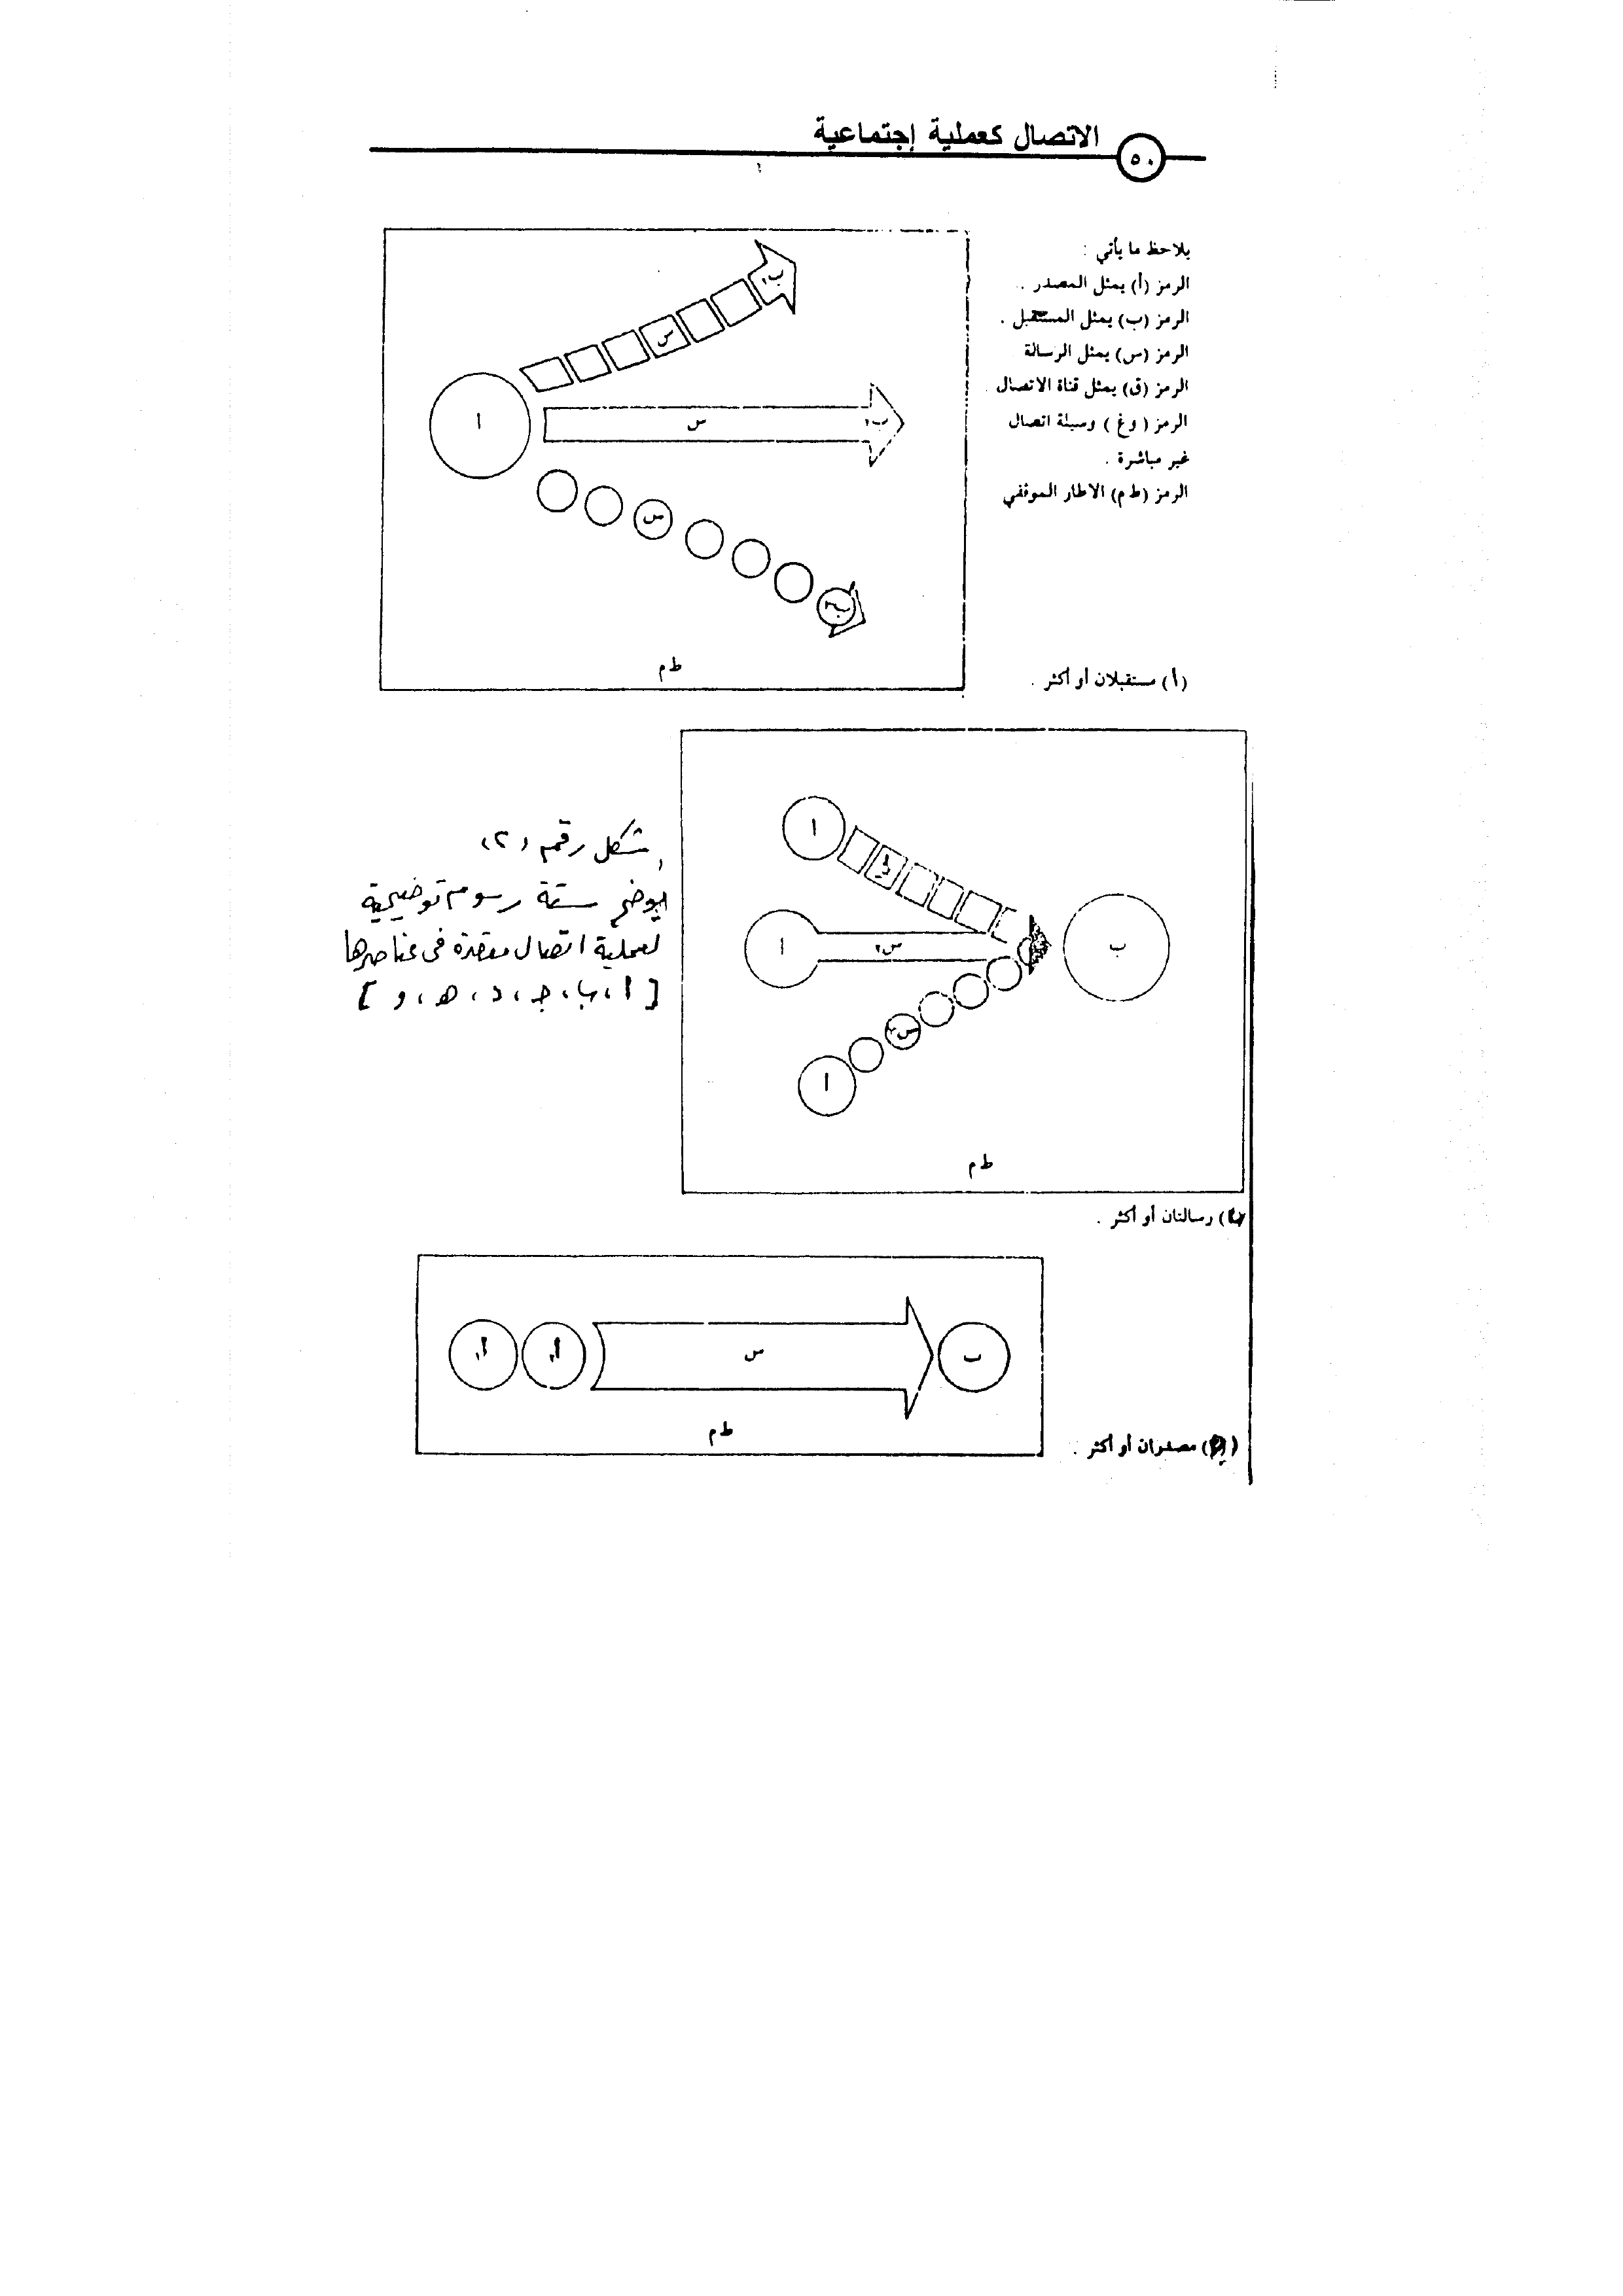 ٥٠
الاتصال كعملية إجتماعية
يلاحظ ما يأتي :
الرمز (أ) يمثل المصدر .
الرمز (ب) يمثل المستقبل .
الرمز (س) يمثل الرسالة
الرمز (ق) يمثل قناة الاتصال
الرمز ( وغ ) وسيلة اتصال
غير مباشرة .
الرمز (ط م) الاطار الموقفي
ب١
س
ا
س
ب٢
س
ب٣
ط م
(أ) مستقبلان أو أكثر .
شكل رقم (٢)
يوضح ستة رسوم توضيحية
لعملية اتصال معقدة في عناصرها
[ ا ، ب ، جـ ، د ، هـ ، و ]
ا
ا
س٢
ب
س٣
ا
ط م
(ب) رسالتان أو أكثر .
أ
أ
س
ب
ط م
مصدران أو أكثر .